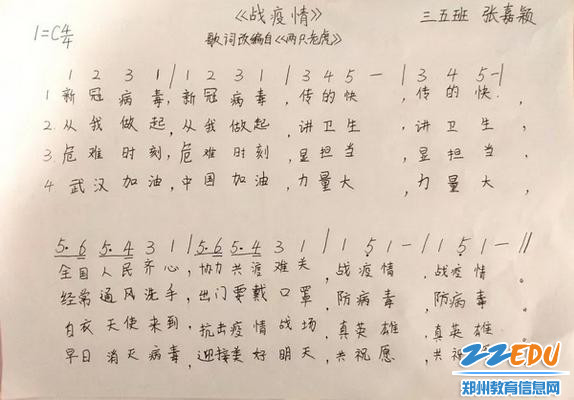 《战疫情》
三五班 张嘉颖
1=C 4/4
歌词改编自《两只老虎》
1 2 3 1 | 1 2 3 1 | 3 4 5 — | 3 4 5 — |
1. 新冠病毒, 新冠病毒, 传的快, 传的快.
2. 从我做起, 从我做起, 讲卫生, 讲卫生,
3. 危难时刻, 危难时刻, 显担当, 显担当,
4 武汉加油, 中国加油, 力量大, 力量大,
5. 6 5. 4 3 1 | 5. 6 5. 4 3 1 | 1 5 1 — | 1 5 1 — ||
全国人民齐心, 协力共渡难关, 战疫情, 战疫情。
经常通风洗手, 出门要戴口罩, 防病毒, 防病毒。
白衣天使来到, 抗击疫情战场, 真英雄, 真英雄。
早日消灭病毒, 迎接美好明天, 共祝愿, 共祝
22EDU
郑州教育信息网